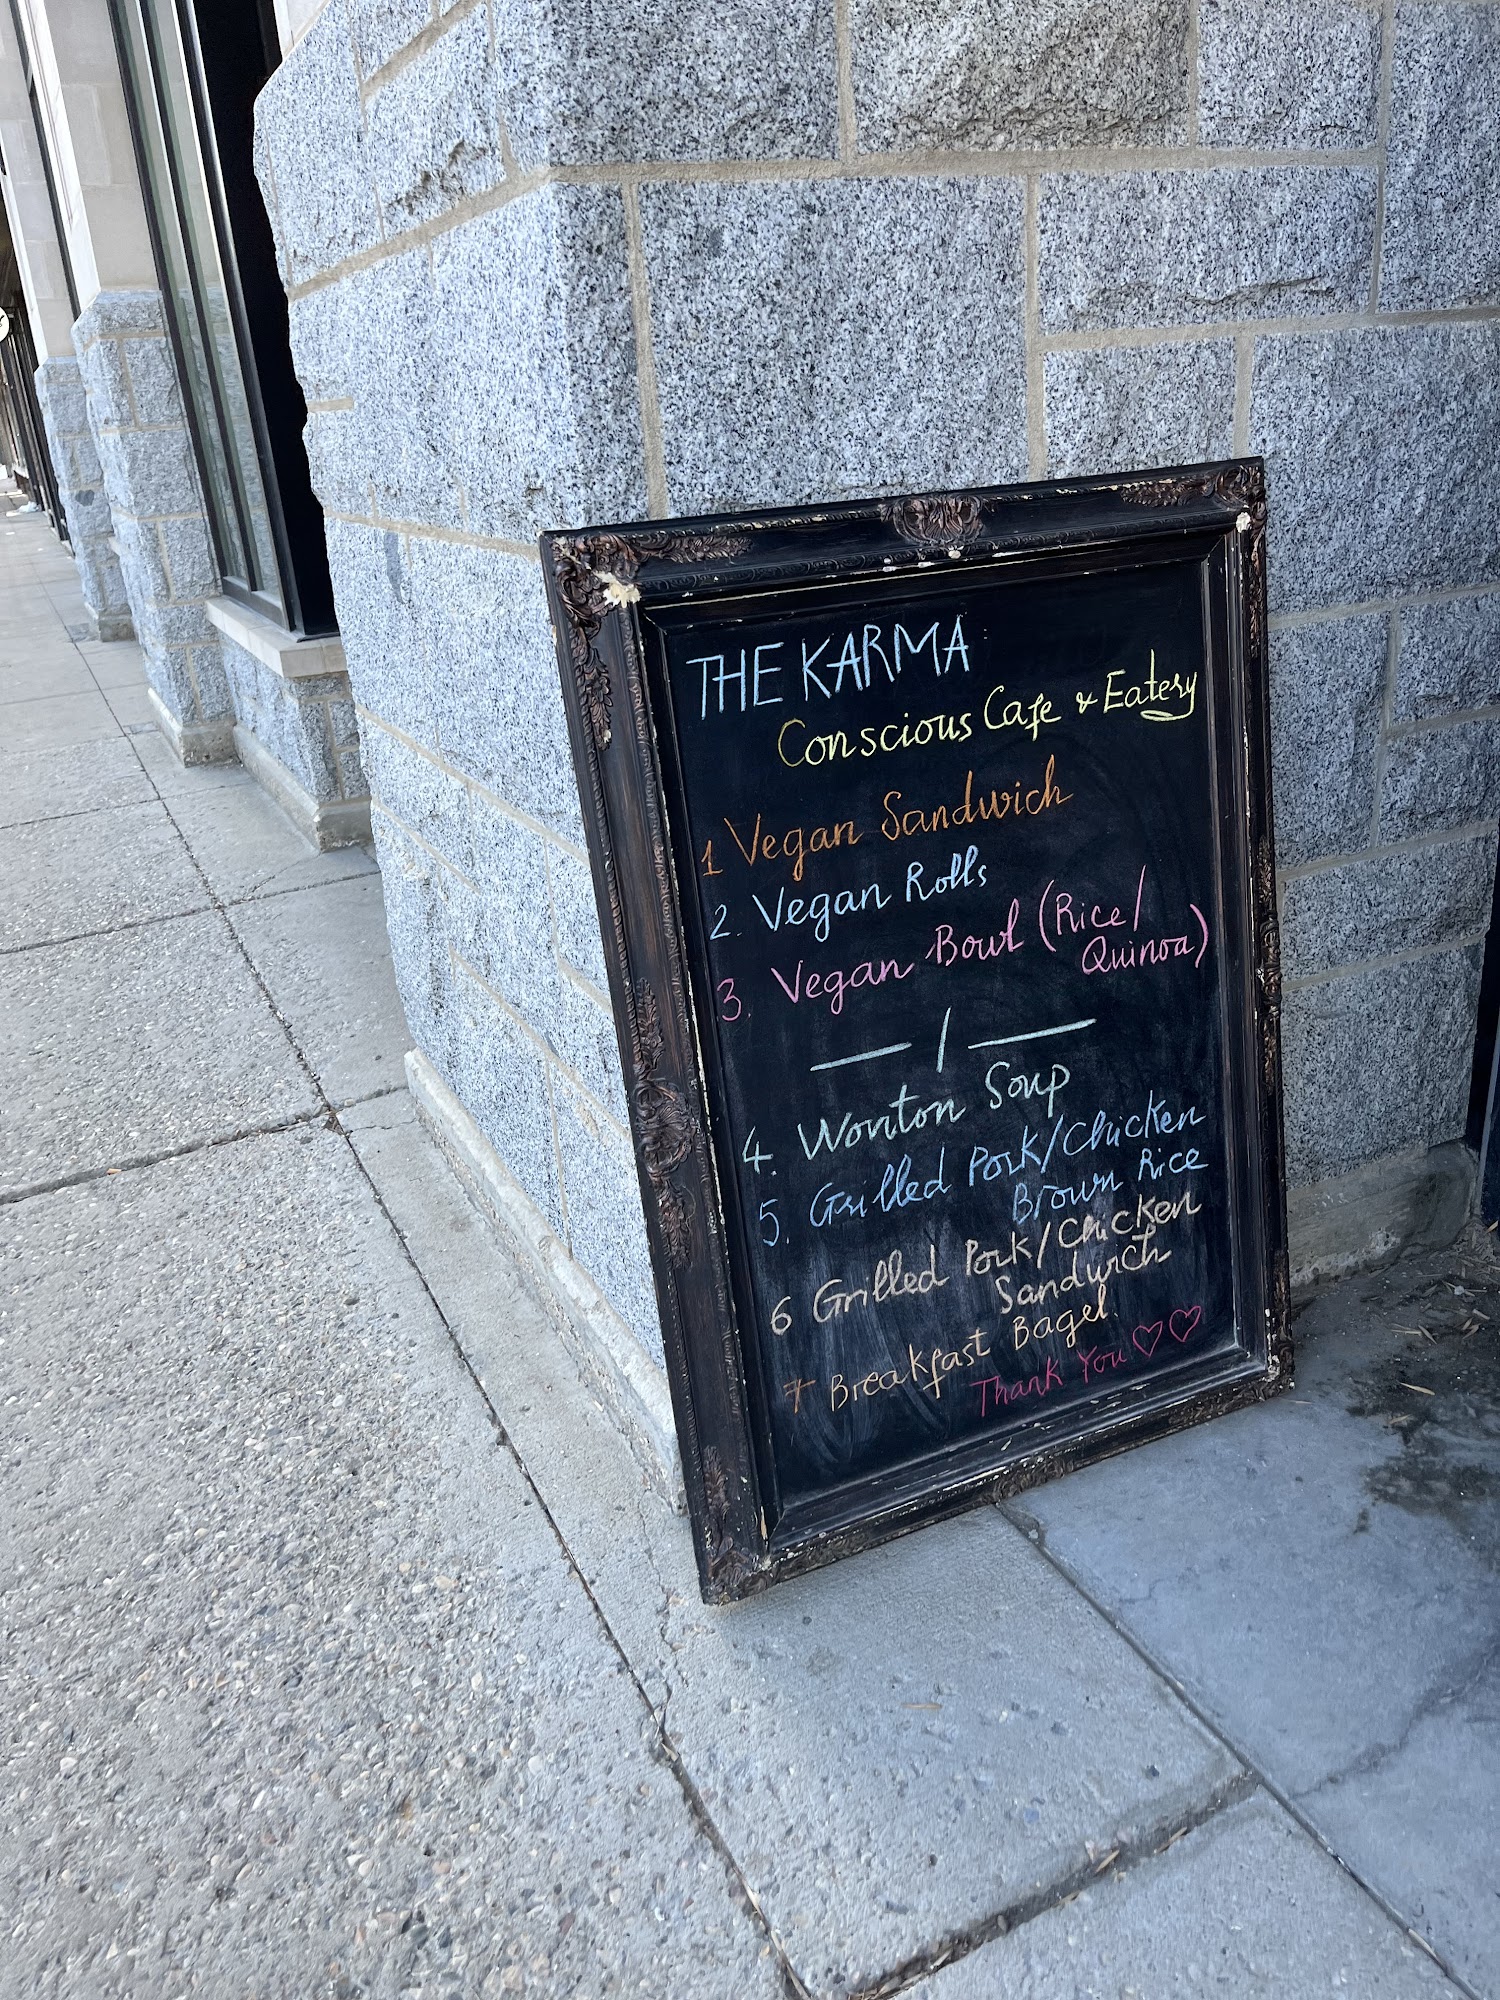 THE KARMA
Conscious Cafe & Eatery
1 Vegan Sandwich
2. Vegan Rolls
3. Vegan Bowl (Rice/
Quinoa)
4. Wonton Soup
5. Grilled Pork/Chicken
Brown Rice
6 Grilled Pork/Chicken
Sandwich
7 Breakfast Bagel.
Thank You ♡♡